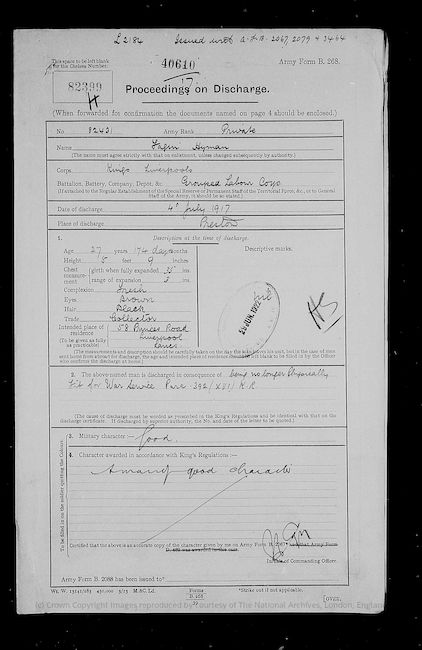 L 2184 Issued with A.F.B. 2067, 2079 & 3464
This space to be left blank
for the Chelsea Number.
40610
17
Army Form B. 268.
82399
H
Proceedings on Discharge.
(When forwarded for confirmation the documents named on page 4 should be enclosed.)
No. Army Rank Private
Name Hyman
(The name must agree strictly with that on enlistment, unless changed subsequently by authority.)
Corps Kings Liverpools
Battalion, Battery, Company, Depot, &c. Grouped Labour Corps
(If attached to the Regular Establishment of the Special Reserve or Permanent Staff of the Territorial Force, &c., or to General
Staff of the Army, it should be so stated.)
Date of discharge 4th July 1917
Place of discharge Preston
1. Description at the time of discharge.
Age 27 years 174 days
Height 5 feet 9 inches
Chest measurement girth when fully expanded 35 ins.
range of expansion 3 ins.
Complexion Fresh
Eyes Brown
Hair Black
Trade Collector
Intended place of residence 58 Road
(To be given as fully as practicable) Liverpool
Lancs
Descriptive marks.
(The measurements and description should be carefully taken on the day the man leaves his unit, but in the case of men
sent home from abroad for discharge, the age and intended place of residence should be left blank to be filled in by the Officer
who confirms the discharge at home.)
2. The above-named man is discharged in consequence of being no longer Physically
fit for War Service Para 392/XVI/ K.R.
(The cause of discharge must be worded as prescribed in the King's Regulations and be identical with that on the
discharge certificate. If discharged by superior authority, the No. and date of the letter to be quoted.)
To be filled in on the soldier quitting the Colours.
3. Military character:— Good.
4. Character awarded in accordance with King's Regulations:—
A man of good character
Certified that the above is an accurate copy of the character given by me on Army Form B. 2067 and that Army Form
D. 489 was awarded in this case.
Initials of Commanding Officer.
Army Form B. 2088 has been issued to*
*Strike out if not applicable.
Forms
B. 268
[OVER.
(c) Crown Copyright Images reproduced by courtesy of The National Archives, London, England